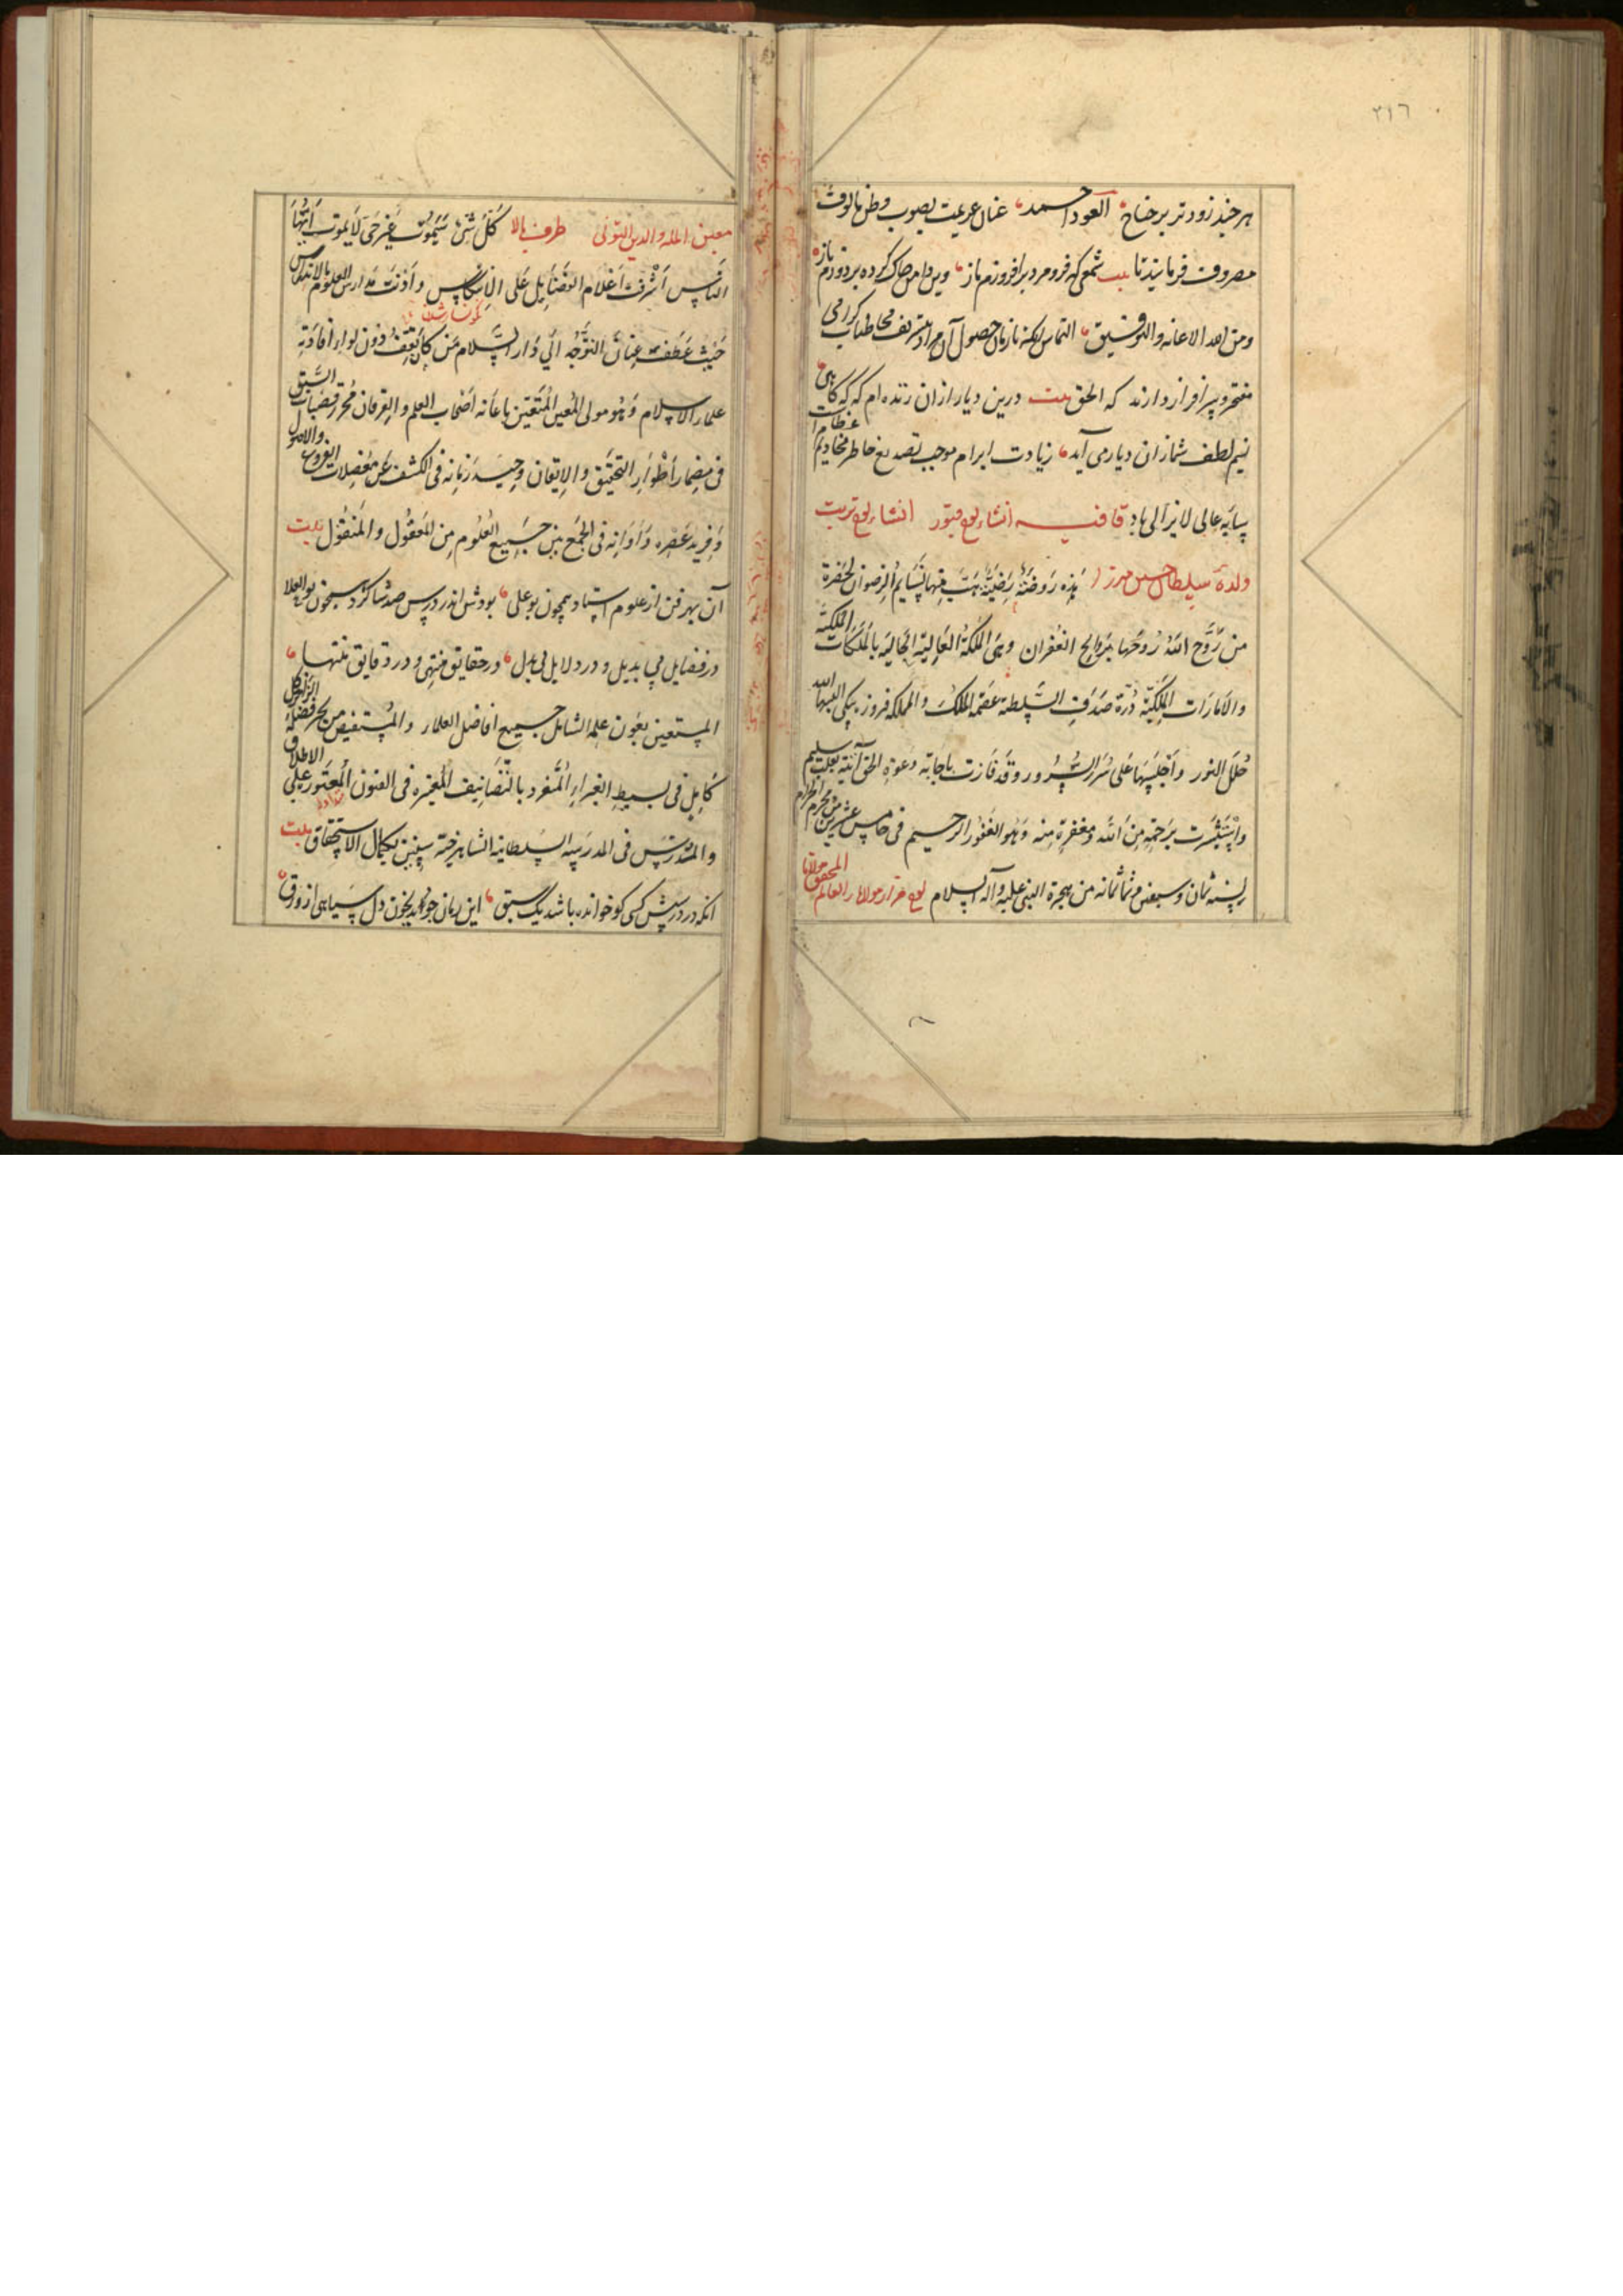 ٢١٦
هر چند زودتر بر جناح العود احمد عنان عزیمت بصوب وطن مالوف
مصروف فرمایند تا بیت شمعی که فرو مرد برافروزم باز وین دامن چاک کرده بردوزم باز
ومن الله الاعانه والتوفیق التماس آنکه تا زمان حصول آن مراد بتشریف مخاطبات گرامی
مفتخر و سرافراز دارند که الحق بیت درین دیار از آن زنده ام که گه گاهی
نسیم لطف شما زان دیار می آید زیادت ابرام موجب تصدیع خاطر مخادیم عظام
بپایه عالی لایزالی باد قافیه انشاء لوح قبور انشاء لوح تربت
والده سلطان حسین میرزا هذه رَوضَةٌ رَضِیَّةٌ هَبَّت مِنها نَسَایِمُ الرِضوان لحضرة
من رَوَّحَ اللهُ رُوحَها بروایح الغُفران وهی المَلِکَةُ العالیة الحالیة بالمَلَکات المَلَکیَّة
والامارات المَلِکیّة دُرَّة صَدَفِ السَّلطنة عصمة المُلک والمملکه فیروزه بیکی البسها الله
حُلَلَ النور واَجلَسَها عَلی سُرُر السُّرُور وقد فازت باجابة دعوة الحق آتیة بقلب سلیم
واستَبشَرت برَحمَةٍ مِن الله ومغفرةٍ منه وَهُوَ الغفور الرحیم فی خامس عشرین من محرم الحرام
لسنه ثمان وسبعین وثمانمائه من هجرة النبی علیه وآله السلام لوح مزار مولانا العالم المحقق مولانا
معین المله والدین التونی طرف بالا کُلُّ شَیْءٍ سَیَمُوتُ غَیرَ حَیٍّ لا یَموت ایّها
الناس اَشرَفَت اَعلام الفضایل عَلی الاِنتکاس واَذِنَت مَدارس العلوم بالاندراس
حَیثُ عَطَفَ عِنانَ التَّوَجُّه الی دار السَّلام مَن کان یَقِف دُون لواء افادته
علماء الاسلام وَهُو مولی المُعین المُتَعَیّن باعانه اصحاب العلم والعرفان مُحرز قصبات السَّبق
فی مِضمار اَطوارِ التحقیق والاِتقان وحید زمانه فی الکشف عن مُعضلات الفروع والاصول
وفرید عَصره واَوانه فی الجمع بین جمیع العُلوم مِن المَعقول والمَنقول بیت
آن بهر فن از علوم استاد همچون بوعلی بودش اندر درس صد شاگرد همچون بوالعلا
در فضایل بی بدیل و در دلایل بی بدل در حقایق منتهی و در دقایق منتها
المستعین بعَون علمه الشامل جمیع افاضل العلماء والمستفیض من بحر فضله الزاخر کل
کامِلٍ فی بسیطِ الغبراءِ المُتَفَرّد بالتَّصانیف المُعتبره فی الفنون المُعتَوَر علی الاطلاق
والمدرّس فی المدرسه السلطانیه الشاهرخیه سنین بکمال الاستحقاق بیت
آنکه در درسش کسی کو خوانده باشد یک سبق این زمان جوید بخون دل سیاهی از ورق